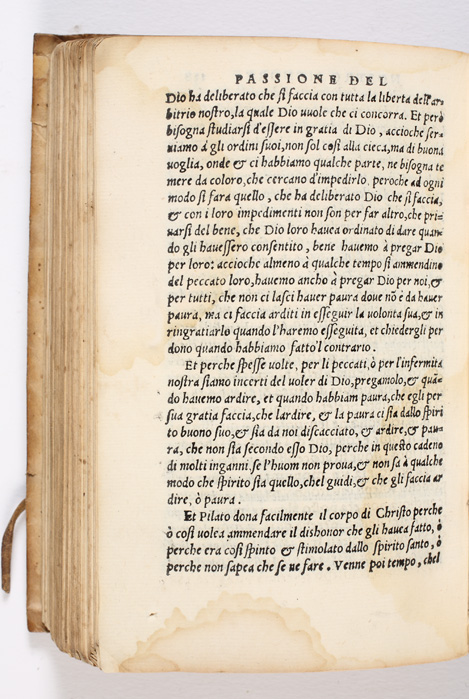 PASSIONE DEL
Dio ha deliberato che si faccia con tutta la liberta dell'ar⸗
bitrio nostro, la quale Dio uuole che ci concorra. Et però
bisogna studiarsi d'essere in gratia di Dio, accioche ser⸗
uiamo à gli ordini suoi, non sol così alla cieca, ma di buona
uoglia, onde & ci habbiamo qualche parte, ne bisogna te
mere da coloro, che cercano d'impedirlo, peroche ad ogni
modo si fara quello, che ha deliberato Dio che si faccia,
& con i loro impedimenti non son per far altro, che pri⸗
uarsi del bene, che Dio loro hauea ordinato di dare quan⸗
do gli hauessero consentito, bene hauemo à pregar Dio
per loro: accioche almeno à qualche tempo si ammendino
del peccato loro, hauemo ancho à pregar Dio per noi, &
per tutti, che non ci lasci hauer paura doue nō è da hauer
paura, ma ci faccia arditi in esseguir la uolonta sua, & in
ringratiarlo quando l'haremo esseguita, et chiedergli per
dono quando habbiamo fatto'l contrario.
Et perche spesse uolte, per li peccati, ò per l'infermita
nostra siamo incerti del uoler di Dio, pregamolo, & quā⸗
do hauemo ardire, et quando habbiam paura, che egli per
sua gratia faccia, che lardire, & la paura ci sia dallo spiri
to buono suo, & sia da noi discacciato, & ardire, & pau⸗
ra, che non sia secondo esso Dio, perche in questo cadeno
di molti inganni, se l'huom non proua, & non sa à qualche
modo che spirito sia quello, chel guidi, & che gli faccia ar
dire, ò paura.
Et Pilato dona facilmente il corpo di Christo perche
ò così uolea ammendare il dishonor che gli hauea fatto, ò
perche era così spinto & stimolato dallo spirito santo, ò
perche non sapea che se ne fare. Venne poi tempo, chel